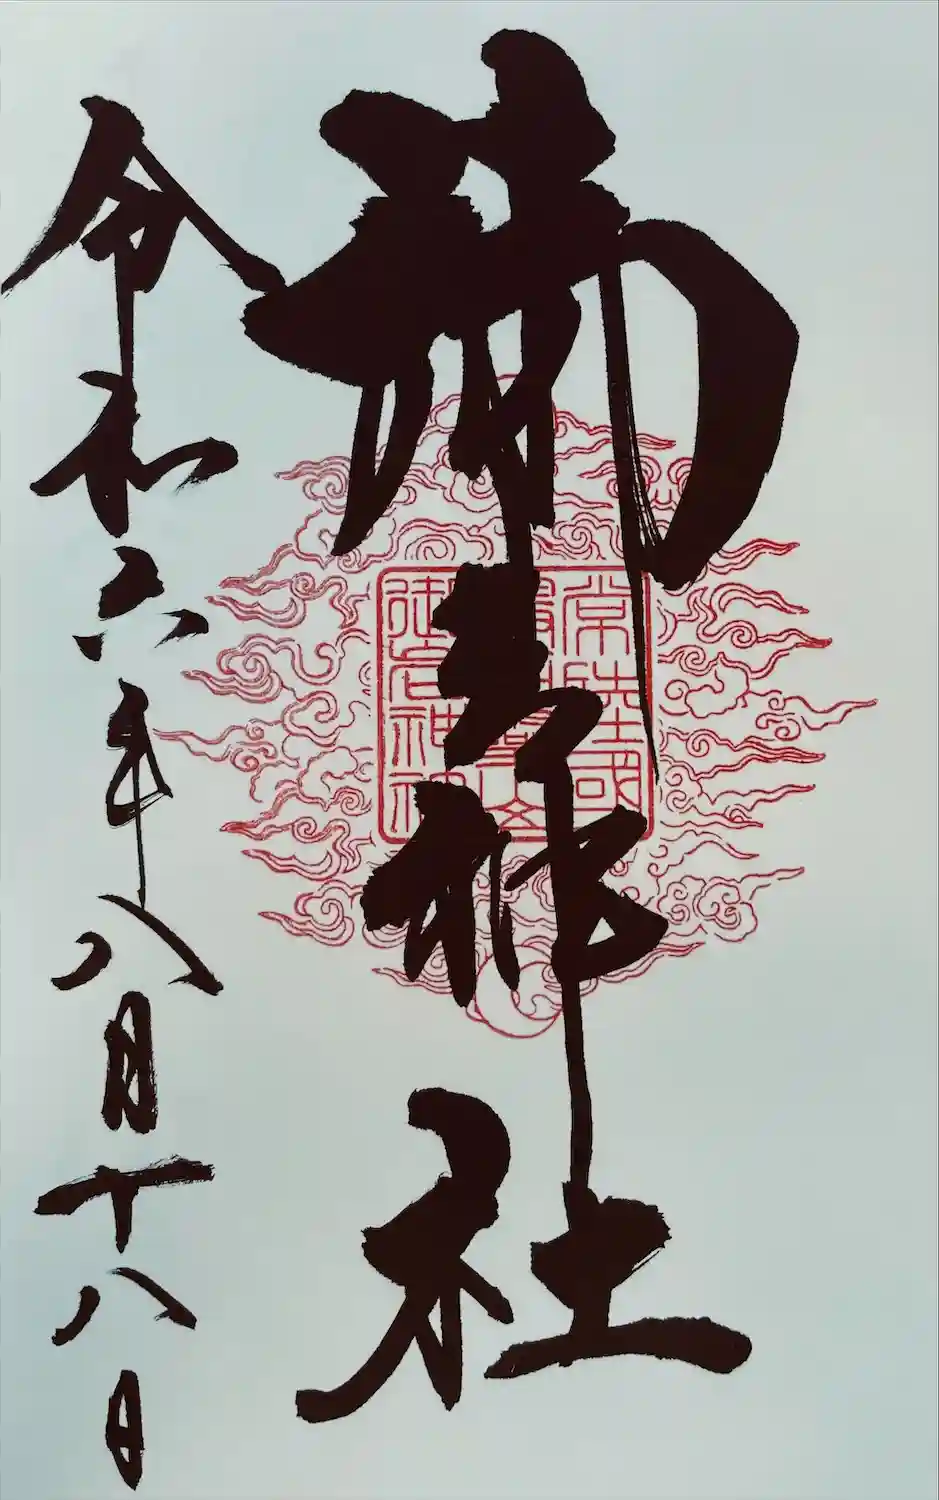 御岩神社
常陸國
御岩神社
令和六年八月十八日